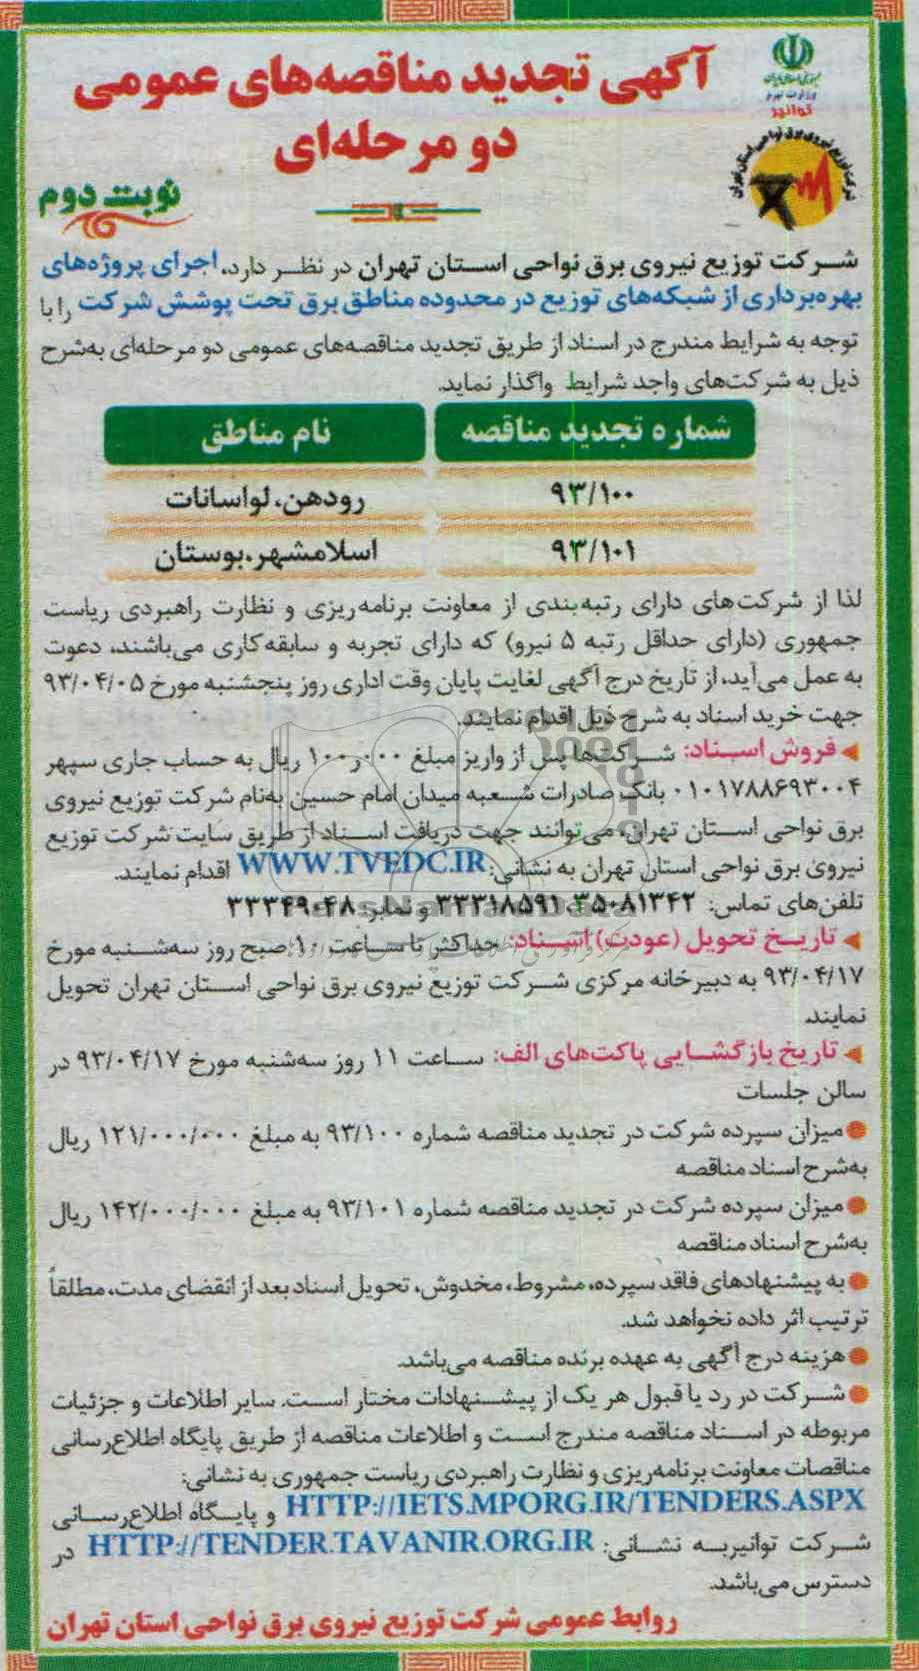 جمهوری اسلامی ایران
وزارت نیرو
توانیر
شرکت توزیع نیروی برق نواحی استان تهران
آگهی تجدید مناقصه‌های عمومی
دو مرحله‌ای
نوبت دوم
شرکت توزیع نیروی برق نواحی استان تهران در نظر دارد، اجرای پروژه‌های
بهره‌برداری از شبکه‌های توزیع در محدوده مناطق برق تحت پوشش شرکت را با
توجه به شرایط مندرج در اسناد از طریق تجدید مناقصه‌های عمومی دو مرحله‌ای به‌شرح
ذیل به شرکت‌های واجد شرایط واگذار نماید.
شماره تجدید مناقصه نام مناطق
۹۳/۱۰۰ رودهن، لواسانات
۹۳/۱۰۱ اسلامشهر، بوستان
لذا از شرکت‌های دارای رتبه‌بندی از معاونت برنامه‌ریزی و نظارت راهبردی ریاست
جمهوری (دارای حداقل رتبه ۵ نیرو) که دارای تجربه و سابقه کاری می‌باشند، دعوت
به عمل می‌آید، از تاریخ درج آگهی لغایت پایان وقت اداری روز پنجشنبه مورخ ۹۳/۰۴/۰۵
جهت خرید اسناد به شرح ذیل اقدام نمایند.
فروش اسناد: شرکت‌ها پس از واریز مبلغ ۱۰۰٫۰۰۰ ریال به حساب جاری سپهر
۰۱۰۱۷۸۸۶۹۳۰۰۴ بانک صادرات شعبه میدان امام حسین به‌نام شرکت توزیع نیروی
برق نواحی استان تهران، می‌توانند جهت دریافت اسناد از طریق سایت شرکت توزیع
نیروی برق نواحی استان تهران به نشانی: WWW.TVEDC.IR اقدام نمایند.
تلفن‌های تماس: ۳۵۰۸۱۳۴۲ - ۳۳۳۱۸۵۹۱ و نمابر: ۳۳۳۴۹۰۴۸
تاریخ تحویل (عودت) اسناد: حداکثر تا ساعت ۱۰ صبح روز سه‌شنبه مورخ
۹۳/۰۴/۱۷ به دبیرخانه مرکزی شرکت توزیع نیروی برق نواحی استان تهران تحویل
نمایند.
تاریخ بازگشایی پاکت‌های الف: ساعت ۱۱ روز سه‌شنبه مورخ ۹۳/۰۴/۱۷ در
سالن جلسات
میزان سپرده شرکت در تجدید مناقصه شماره ۹۳/۱۰۰ به مبلغ ۱۲۱/۰۰۰/۰۰۰ ریال
به‌شرح اسناد مناقصه
میزان سپرده شرکت در تجدید مناقصه شماره ۹۳/۱۰۱ به مبلغ ۱۴۲/۰۰۰/۰۰۰ ریال
به‌شرح اسناد مناقصه
به پیشنهادهای فاقد سپرده، مشروط، مخدوش، تحویل اسناد بعد از انقضای مدت، مطلقاً
ترتیب اثر داده نخواهد شد.
هزینه درج آگهی به عهده برنده مناقصه می‌باشد.
شرکت در رد یا قبول هر یک از پیشنهادات مختار است. سایر اطلاعات و جزئیات
مربوطه در اسناد مناقصه مندرج است و اطلاعات مناقصه از طریق پایگاه اطلاع‌رسانی
مناقصات معاونت برنامه‌ریزی و نظارت راهبردی ریاست جمهوری به نشانی:
HTTP://IETS.MPORG.IR/TENDERS.ASPX و پایگاه اطلاع‌رسانی
شرکت توانیر به نشانی: HTTP://TENDER.TAVANIR.ORG.IR در
دسترس می‌باشد.
روابط عمومی شرکت توزیع نیروی برق نواحی استان تهران